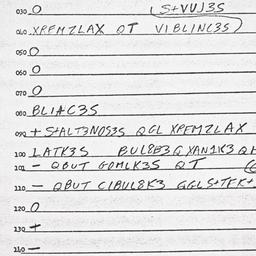 030 O (S+VVJ3S
040 XPEMZLAX OT VIBLINC3S)
050 O
060 O
070 O
080 BLIAC3S
090 + S+ALT3NOS3S QGL XPEMZLAX
100 LATK3S BUL8B3G XAN1K3 QH
101 - QBUT GOMLK3S QT
110 - QBUT CIBUL8K3 GGLS+TFK+
120 O
130 +
140 -